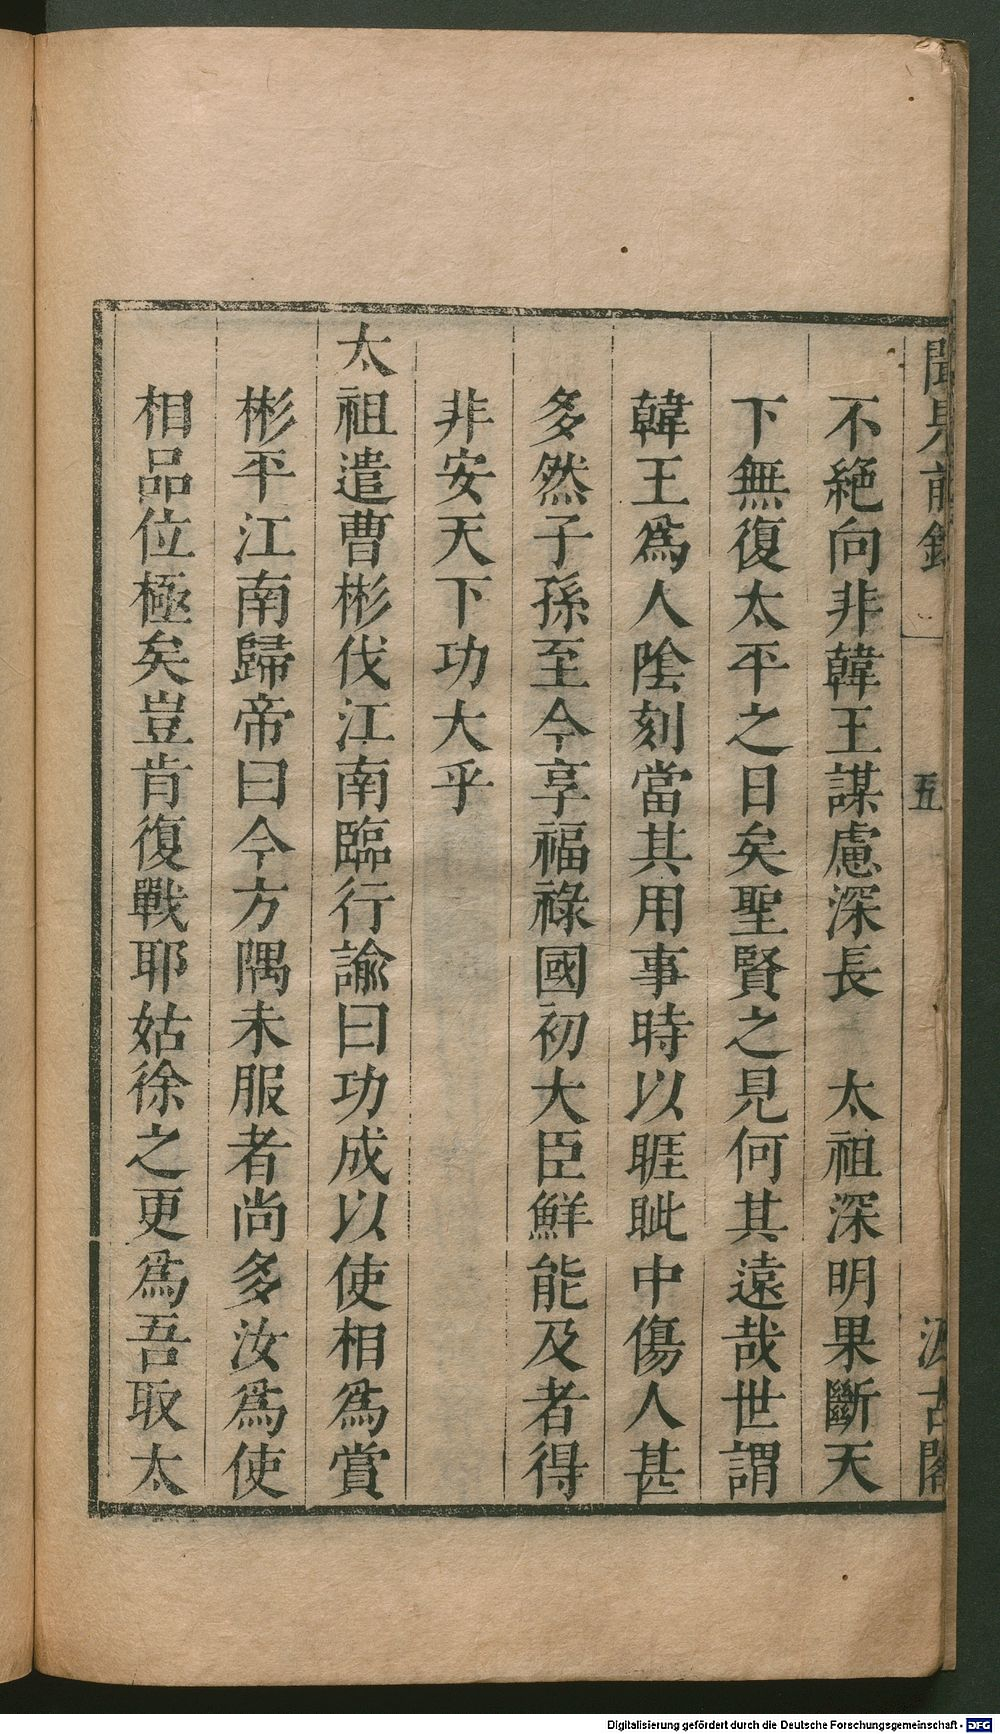 聞見前錄
五
汲古閣
不絕向非韓王謀慮深長　太祖深明果斷天
下無復太平之日矣聖賢之見何其遠哉世謂
韓王爲人陰刻當其用事時以睚眦中傷人甚
多然子孫至今享福祿國初大臣鮮能及者得
非安天下功大乎
太祖遣曹彬伐江南臨行諭曰功成以使相爲賞
彬平江南歸帝曰今方隅未服者尚多汝爲使
相品位極矣豈肯復戰耶姑徐之更爲吾取太
Digitalisierung gefördert durch die Deutsche Forschungsgemeinschaft - DFG